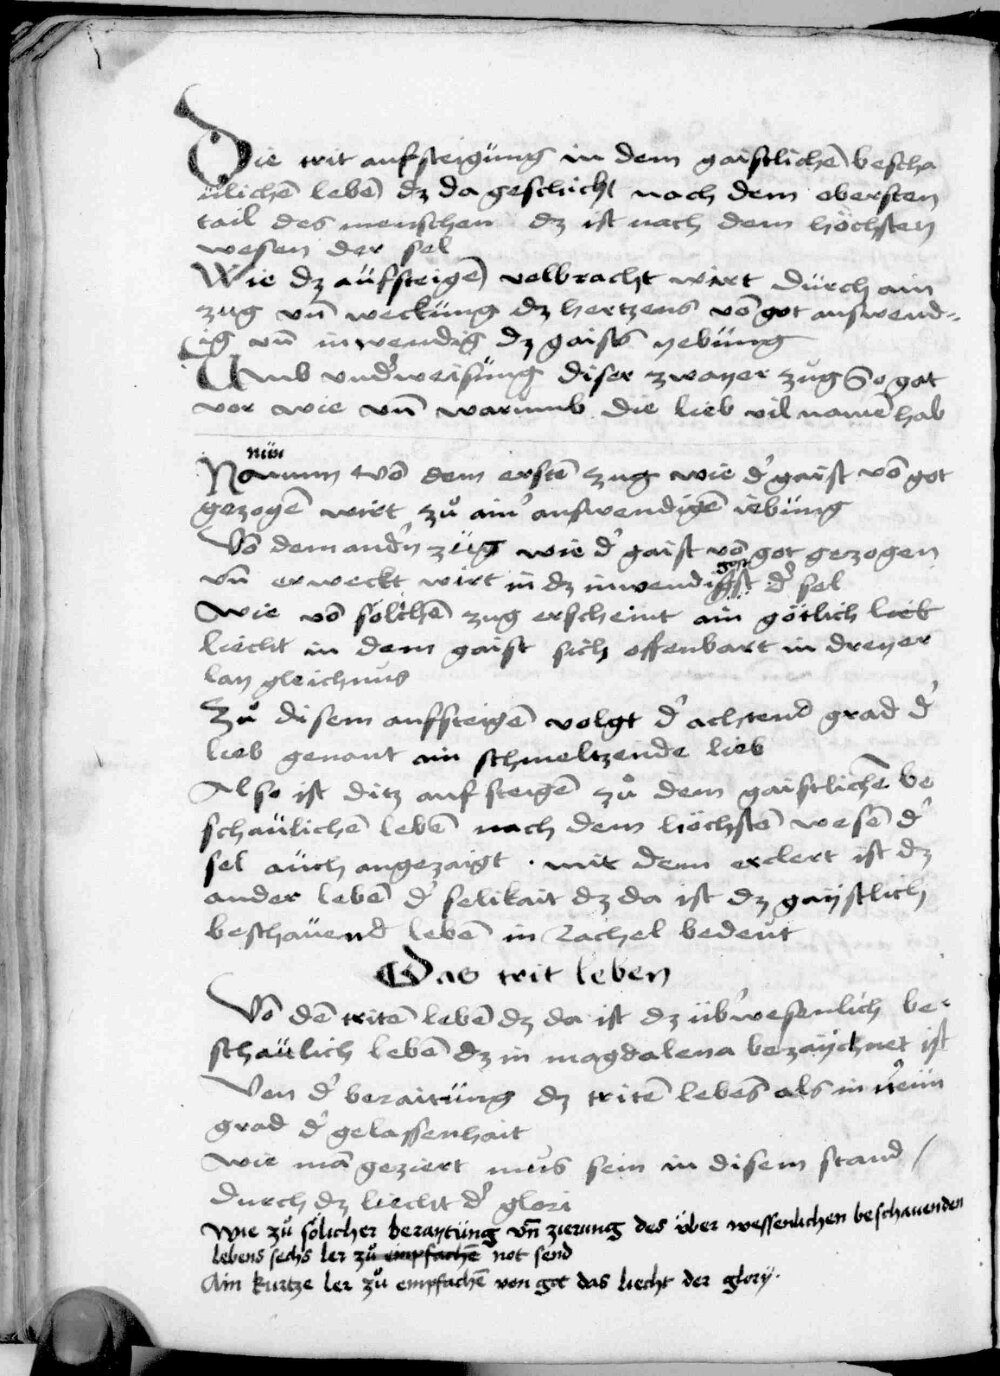 Die trit aufsteigung in dem gaistlichē bescha
ulichē lebē dz da geschicht nach dem obersten
tail des menschen dz ist nach dem höchsten
wesen der sel
Wie dz aüfsteigē volbracht wirt dürch ain
zug vn̄ wecküng dz hertzens vō got auswend-
ig vn̄ inwendig dz gaists yebüng
Umb vnd'weisüng diser zwayer züg So got
vor wie vn̄ warumb die lieb vil namē hab
nün
Vō dem erstē zug wie d' gaist vō got
gezogē wirt zů ain' auswendigē iebüng
Vō dem and'n züg wie d' gaist vō got gezogen
vn̄ erweckt wirt in dz inwendigst d' sel
Wie vō sölichē zug erscheint ain götlich
liecht in dem gaist sich offenbart in dreyer
lay gleichnus
Zů disem aufsteigē volgt d' achtend grad d'
lieb genant ain schmeltzende lieb
Also ist ditz aufsteigē zů dem gaistlichē be
schaülichē lebē nach dem höchstē wesē d'
sel aüch angezaigt · mit dem erclert ist dz
ander lebē d' selikait dz da ist dz gaystlich
beschauend lebē in Rachel bedeüt
Das trit leben
Vō dē tritē lebē dz da ist dz üb'wesenlich be-
schaülich lebē dz in magdalena bezaychnet ist
Von d' beraitüng dz tritē lebēs als in neün
grad d' gelassenhait
Wie mā geziert müs sein in disem stand /
durch dz liecht d' glori
Wie zů sölicher beraytüng vn̄ zierung des über wessenlichen beschauenden
lebens sechs ler zů empfachē not send
Ain kurtze ler zů empfachē von got das liecht der glory.